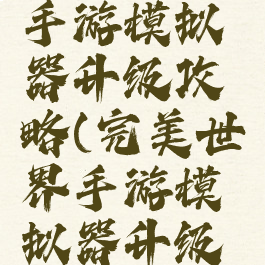 手游模拟
器升级攻
略(完美世
界手游模
拟器升级